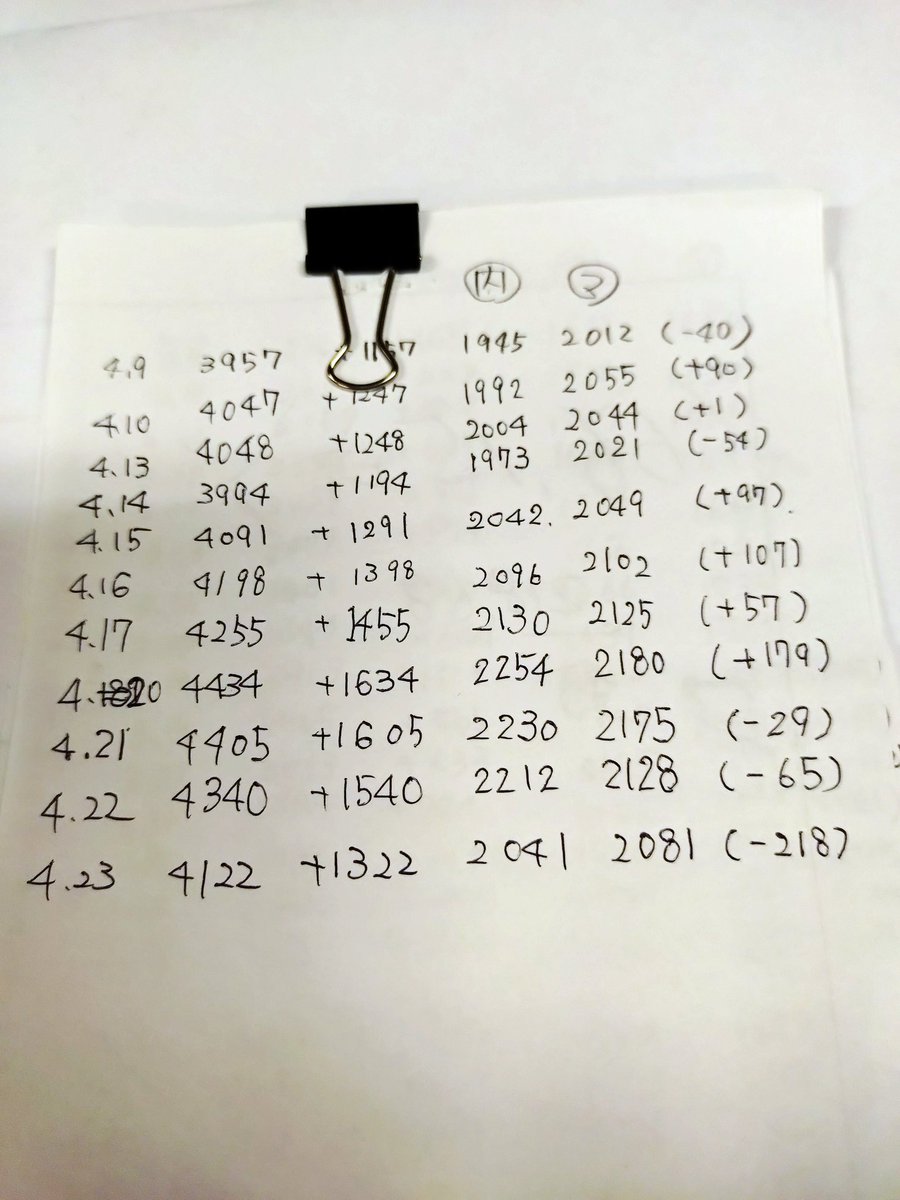 内 マ
4.9 3957 +1157 1945 2012 (-40)
4.10 4047 +1247 1992 2055 (+90)
4.13 4048 +1248 2004 2044 (+1)
4.14 3994 +1194 1973 2021 (-54)
4.15 4091 +1291 2042. 2049 (+97).
4.16 4198 +1398 2096 2102 (+107)
4.17 4255 +1455 2130 2125 (+57)
4.20 4434 +1634 2254 2180 (+179)
4.21 4405 +1605 2230 2175 (-29)
4.22 4340 +1540 2212 2128 (-65)
4.23 4122 +1322 2041 2081 (-218)